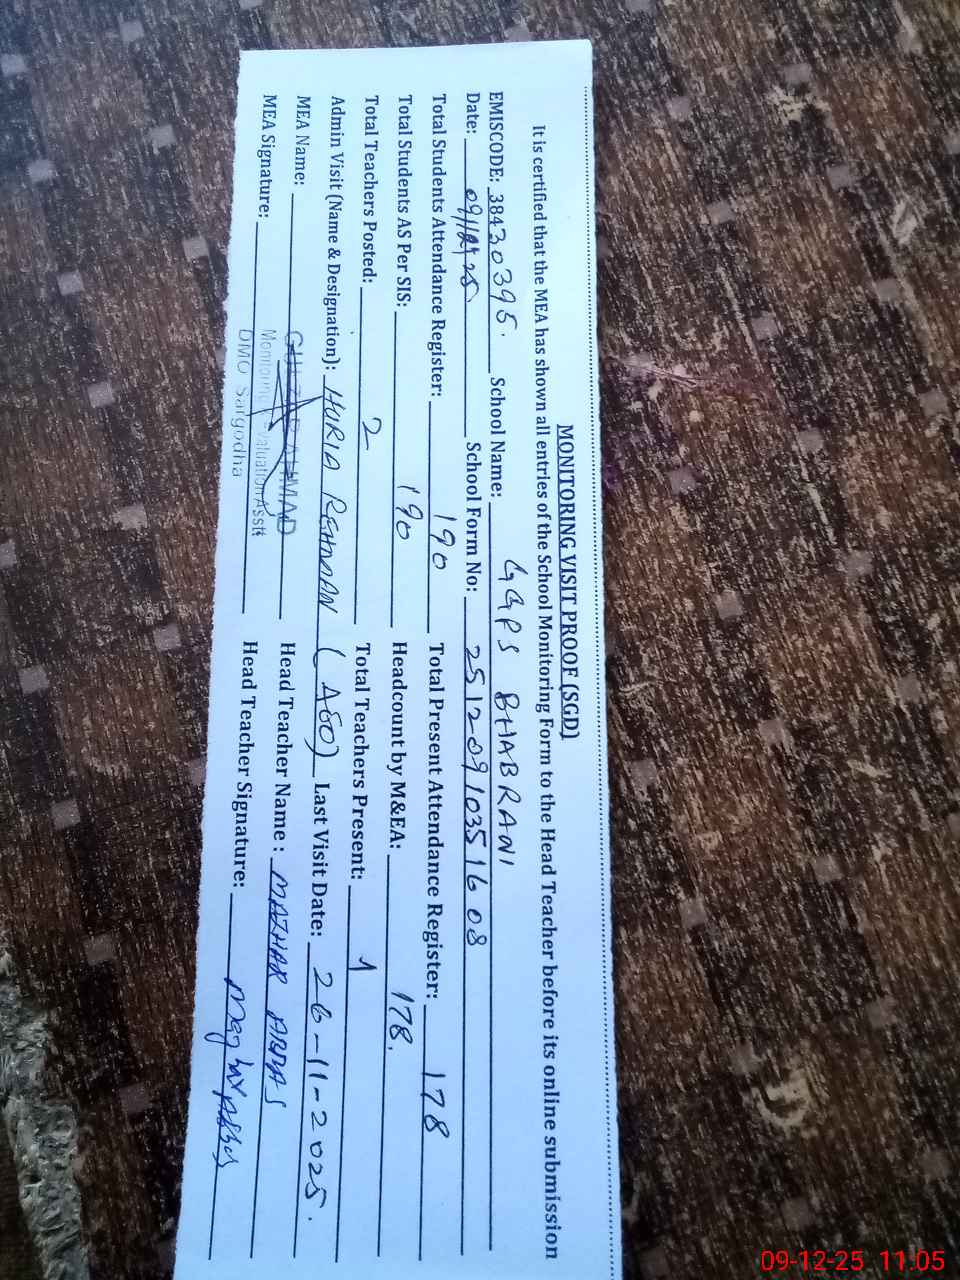 MONITORING VISIT PROOF (SGD)
It is certified that the MEA has shown all entries of the School Monitoring Form to the Head Teacher before its online submission
EMISCODE: 38430395. School Name: GGPS BHABRANI
Date: 09/12/25 School Form No: 25120910351608
Total Students Attendance Register: 190 Total Present Attendance Register: 178
Total Students AS Per SIS: 190 Headcount by M&EA: 178.
Total Teachers Posted: 2 Total Teachers Present: 1
Admin Visit (Name & Designation): HURIA REHMAN (AEO) Last Visit Date: 26-11-2025.
MEA Name: GULZAR AHMAD Head Teacher Name : MAZHAR ABBAS
MEA Signature: Monitoring Evaluation Asstt Head Teacher Signature: Mazhar Abbas
DMO Sargodha
09-12-25 11:05